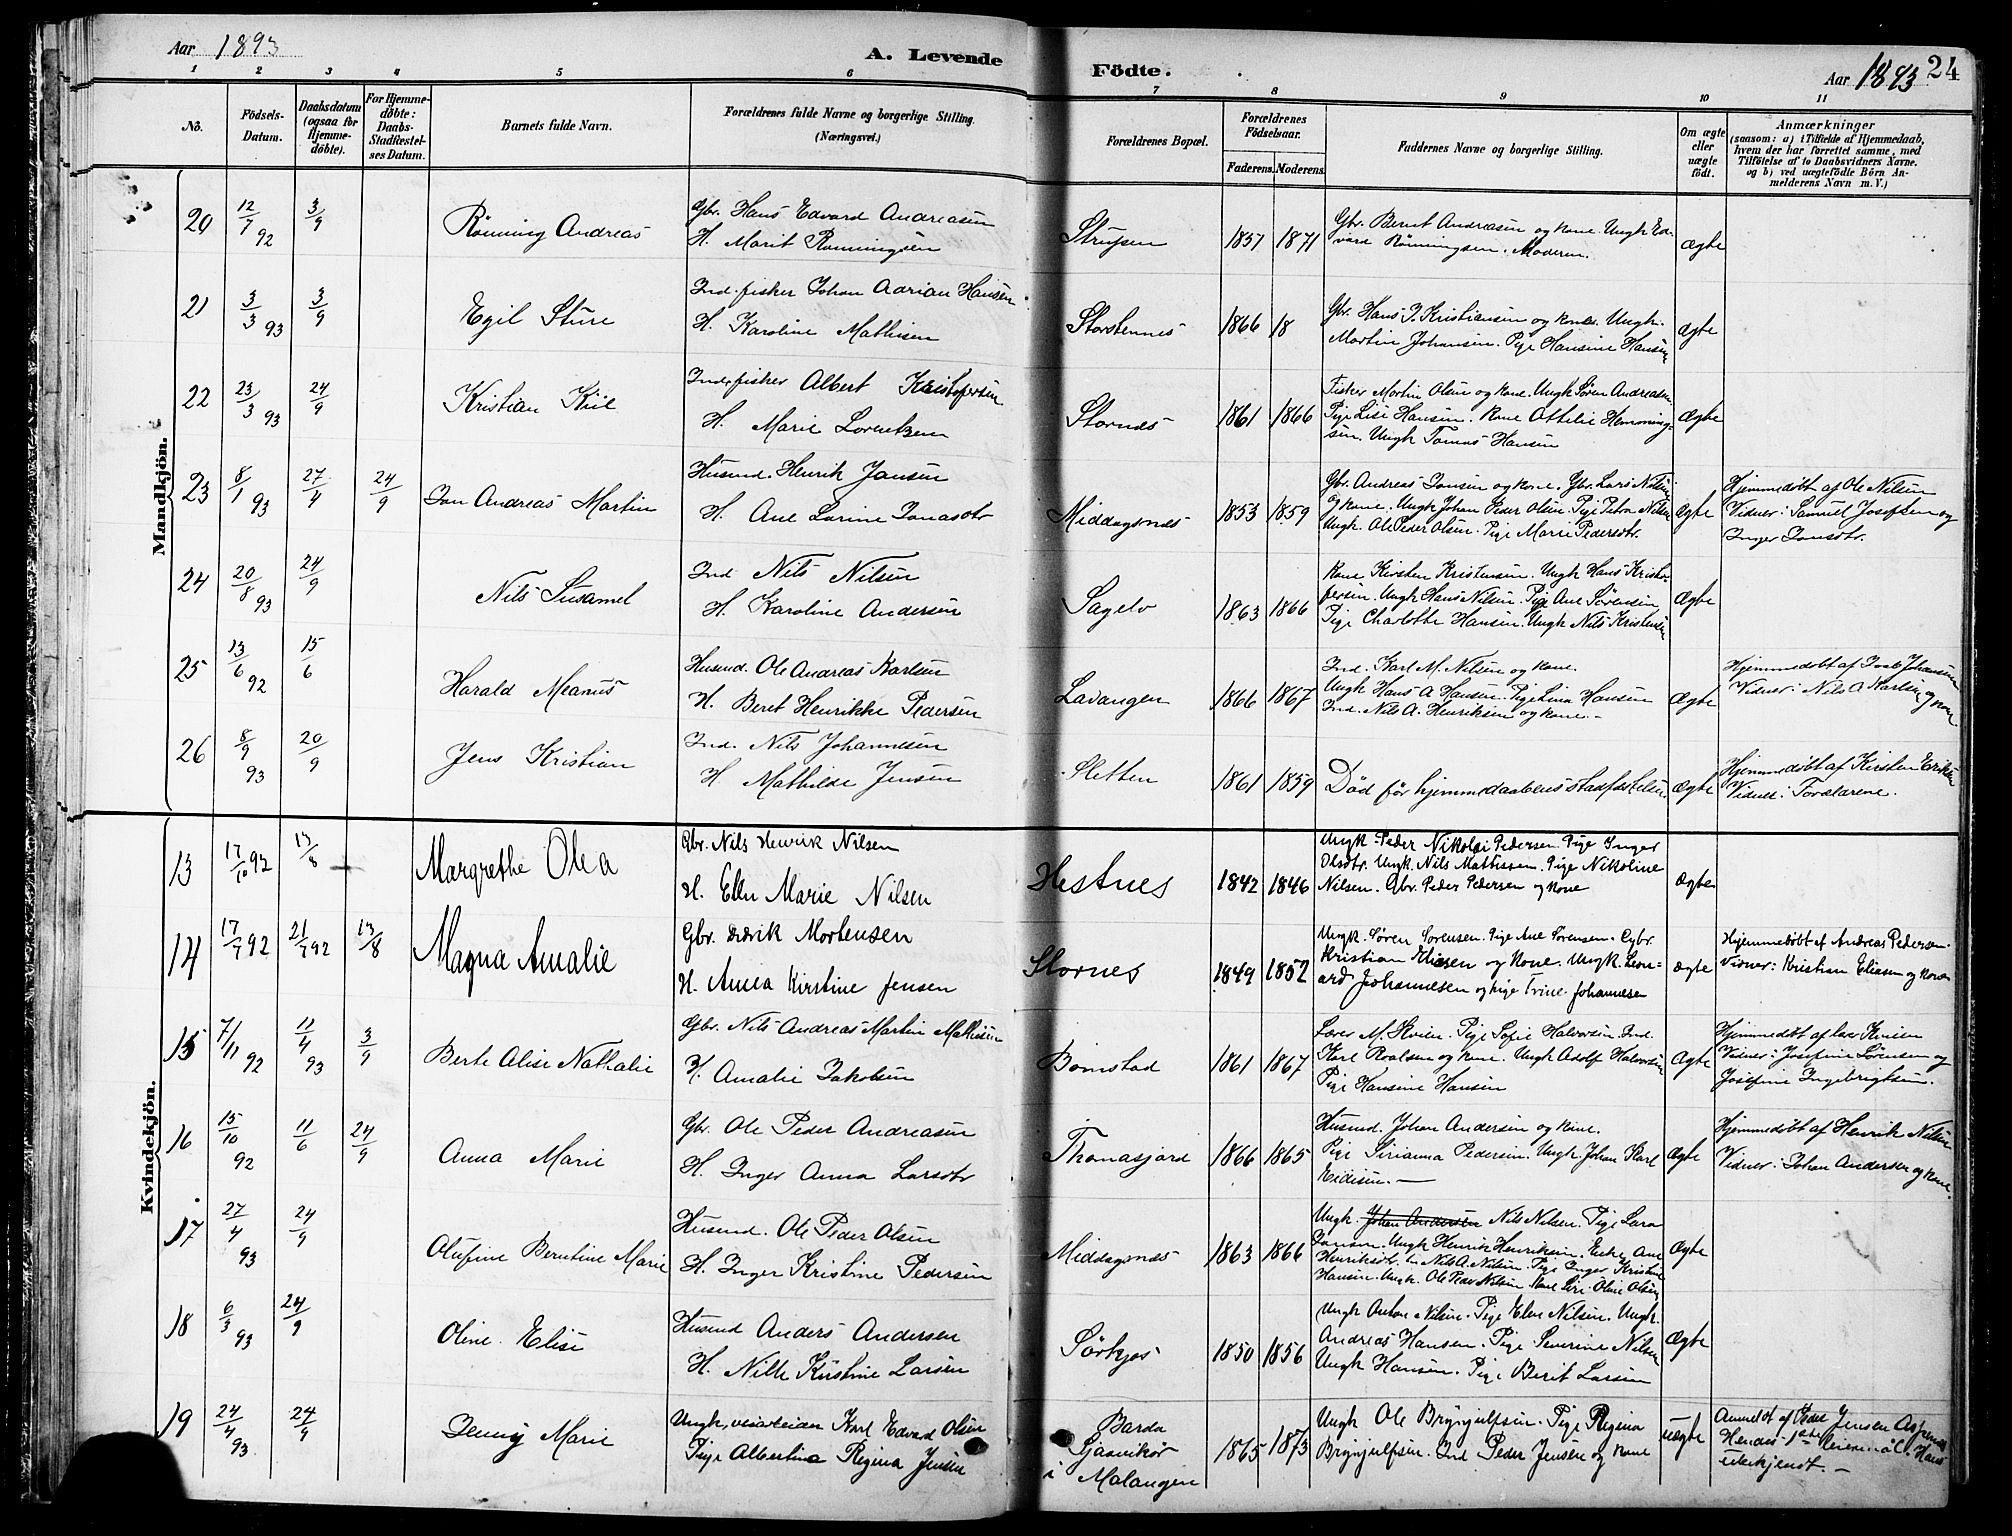 Aar 1893
A. Levende
Födte.
Aar 1893
24
1 2 3 4 5 6 7 8 9 10 11
No.
Födsels-
Datum.
Daabsdatum
(ogsaa for
Hjemme-
döbte).
For Hjemme-
döbte:
Daabs-
Stadfæstel-
ses Datum.
Barnets fulde Navn.
Forældrenes fulde Navne og borgerlige Stilling.
(Næringsvei.)
Forældrenes Bopæl.
Forældrenes
Födselsaar.
Faderens. Moderens.
Faddernes Navne og borgerlige Stilling.
Om ægte
eller
uægte
födt.
Anmærkninger
(saasom: a) i Tilfælde af Hjemmedaab,
hvem der har forrettet samme, med
Tilföielse af to Daabsvidners Navne.
og b) ved uægtefödte Börn An-
melderens Navn m. V.)
Mandkjön.
20 12/7 92 3/9 Rönning Andreas
Gbr. Hans Edvard Andreasen
H. Marit Rönningsen
Strupen 1857 1871
Gbr. Bernt Andreasen og kone. Ungk Ed-
vard Rönningsen. Moderen.
Ægte
21 3/3 93 3/9 Egil Sture
Ind. fisker Johan Adrian Hansen
H. Karoline Mathisen
Storstennes 1866 18
Gbr. Hans P. Kristiansen og kone. Ungk.
Martin Johansen. Pige Hansine Hansen
Ægte
22 23/3 93 24/9 Kristian Kiil
Ind. fisker Albert Kristofersen
H. Marie Lorentzen
Stornes 1861 1866
Fisker Martin Olsen og kone. Ungk Sören Andreasen
Pige Lise Hansen. Kone Ottilie Hemming-
sen. Ungk Tomas Hansen
Ægte
23 8/1 93 27/4 24/9 Jon Andreas Martin
Husmd. Henrik Jansen
H. Ane Larine Jonasdtr
Middagsnes 1853 1859
Gbr. Andreas Jonsen og kone. Gbr. Lars Nilsen
og kone. Ungk Johan Peder Olsen. Pige Petra Nilsen
Ungk. Ole Peder Olsen. Pige Marie Pedersdtr.
Ægte
Hjemmedöbt af Ole Nilsen
Vidner: Samuel Josefsen og
Inger Jonsdtr.
24 20/8 93 24/9 Nils Susamel
Ind Nils Nilsen
H. Karoline Andersen
Sagelv 1863 1866
Kone Kirsten Kristensen. Ungk Hans Kristof-
fersen. Ungk Hans Nilsen. Pige Ane Sörensen
Pige Charlotte Hansen. Ungk Nils Kristensen
Ægte
25 13/6 92 15/6 Harald Meanus
Husmd. Ole Andreas Karlsen
H. Beret Henrikke Pedersen
Lavangen 1866 1867
Ind. Karl M. Nilsen og kone.
Ungk Hans A Hansen. Pige Lina Hansen
Ind. Nils A. Henriksen og kone.
Ægte
Hjemmedöbt af Johansen
Vidner: Nils A Karlsen og kone
26 8/9 93 20/9 Jens Kristian
Ind. Nils Johannesen
H Mathilde Jensen
Sletten 1861 1859
Död för hjemmedaabens stadfæstelse.
Ægte
Hjemmedöbt af Kirsten Eriksen
Vidner: Forældrene.
Kvindekjön.
13 17/10 92 13/8 Margrethe Olea
Gbr. Nils Henrik Nilsen
H. Ellen Marie Nilsen
Hestnes 1842 1846
Ungk. Peder Nikolai Pedersen. Pige Inger
Olsdtr. Ungk Nils Mathissen. Pige Nikoline
Nilsen. Gbr. Peder Pedersen og kone
ægte
14 17/7 92 21/7 92 13/8 Magna Amalie
Gbr. Didrik Mortensen
H. Anna Kirstine Jensen
Stornes 1849 1852
Ungk. Sören Sorensen. Pige Ane Sorensen. Gbr.
Kristian Eliesen og kone. Ungk. Leon-
ard Johannesen og Pige Trine Johannesen
ægte
Hjemmedöbt af Andreas Pedersen.
Vidner: Kristian Eliesen og kone
15 7/11 92 11/4 93 3/9 Berte Alise Nathalie
Gbr. Nils Andreas Martin Mathisen
H. Amalie Jakobsen
Bomstad 1861 1867
Lærer M. Kvien. Pige Sofie Halvorsen. Ind.
Karl Roalsen og kone. Ungk Adolf Halvorsen
Pige Hansine Hansen
Ægte
Hjemmedöbt af lærer Kvien
Vidner: Josefine Sörensen og
Josefine Ingebrigtsen.
16 15/10 92 11/6 24/9 Anna Marie
Gbr. Ole Peder Andreasen
H. Inger Anna Larsdtr
Thomasjord 1866 1865
Husmd. Johan Andersen og kone.
Pige Sirianna Pedersen. Ungk Johan Karl
Eidisen.
Ægte
Hjemmedöbt af Henrik Nilsen
Vidner: Johan Andersen og kone.
17 27/4 93 24/9 Olufine Berntine Marie
Husmd. Ole Peder Olsen
H. Inger Kristine Pedersen
Middagsnes 1863 1866
Ungk. Johan Andersen Nils Nilsen. Pige Lara
Jonsen. Ungk Henrik Henriksen. Enke Ane
Henriksdtr. Nils A. Nilsen. Pige Inger Kristine
Hansen. Ungk. Ole Peder Nilsen. Kone Siri Oline Olsen
Ægte
18 6/3 93 24/9 Oline Elise
Husmd Anders Andersen
H. Nille Kirstine Larsen
Sörkjos 1850 1856
Ungk Anton Nilsen. Pige Elen Nilsen. Ungk.
Andreas Hansen. Pige Severine Nilsen
Ungk Hansen. Pige Berit Larsen
Ægte
19 24/4 93 24/9 Jenny Marie
Ungk. Karl Edvard Olsen
Pige Albertine Regina Jensen
Barda
i Malangen
1865 1873
Ungk Ole Brynjulfsen. Pige Regina
Brynjulfsen. Ind Peder Jensen og kone
uægte
Anmeldt af Peder Jensen
Hendes 1ste leiermaal. Hans
ubekjendt.